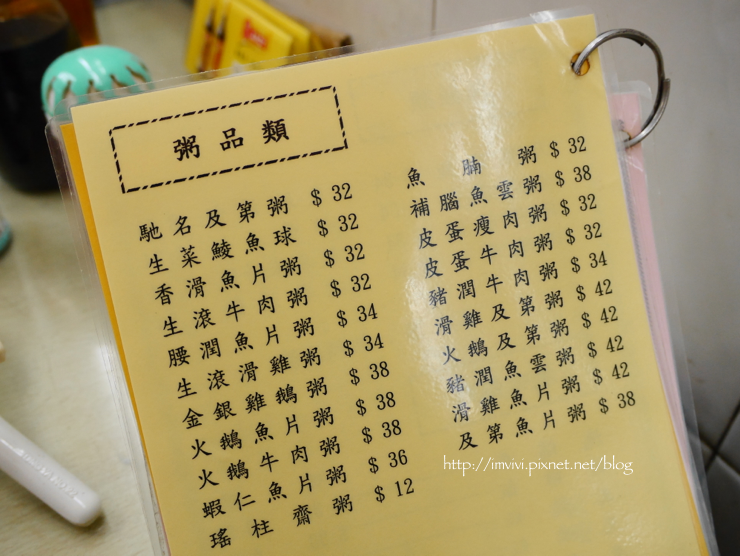 粥品類
馳名及第粥 $32
生菜鯪魚球 $32
香滑魚片粥 $32
生滾牛肉粥 $32
腰潤魚片粥 $34
生滾滑雞粥 $34
金銀雞鵝粥 $38
火鵝魚片粥 $38
火鵝牛肉粥 $38
蝦仁魚片粥 $36
瑤柱齋粥 $12
魚腩粥 $32
補腦魚雲粥 $38
皮蛋瘦肉粥 $32
皮蛋牛肉粥 $32
豬潤牛肉粥 $34
滑雞及第粥 $42
火鵝及第粥 $42
豬潤魚雲粥 $42
滑雞魚片粥 $42
及第魚片粥 $38
http://imvivi.pixnet.net/blog